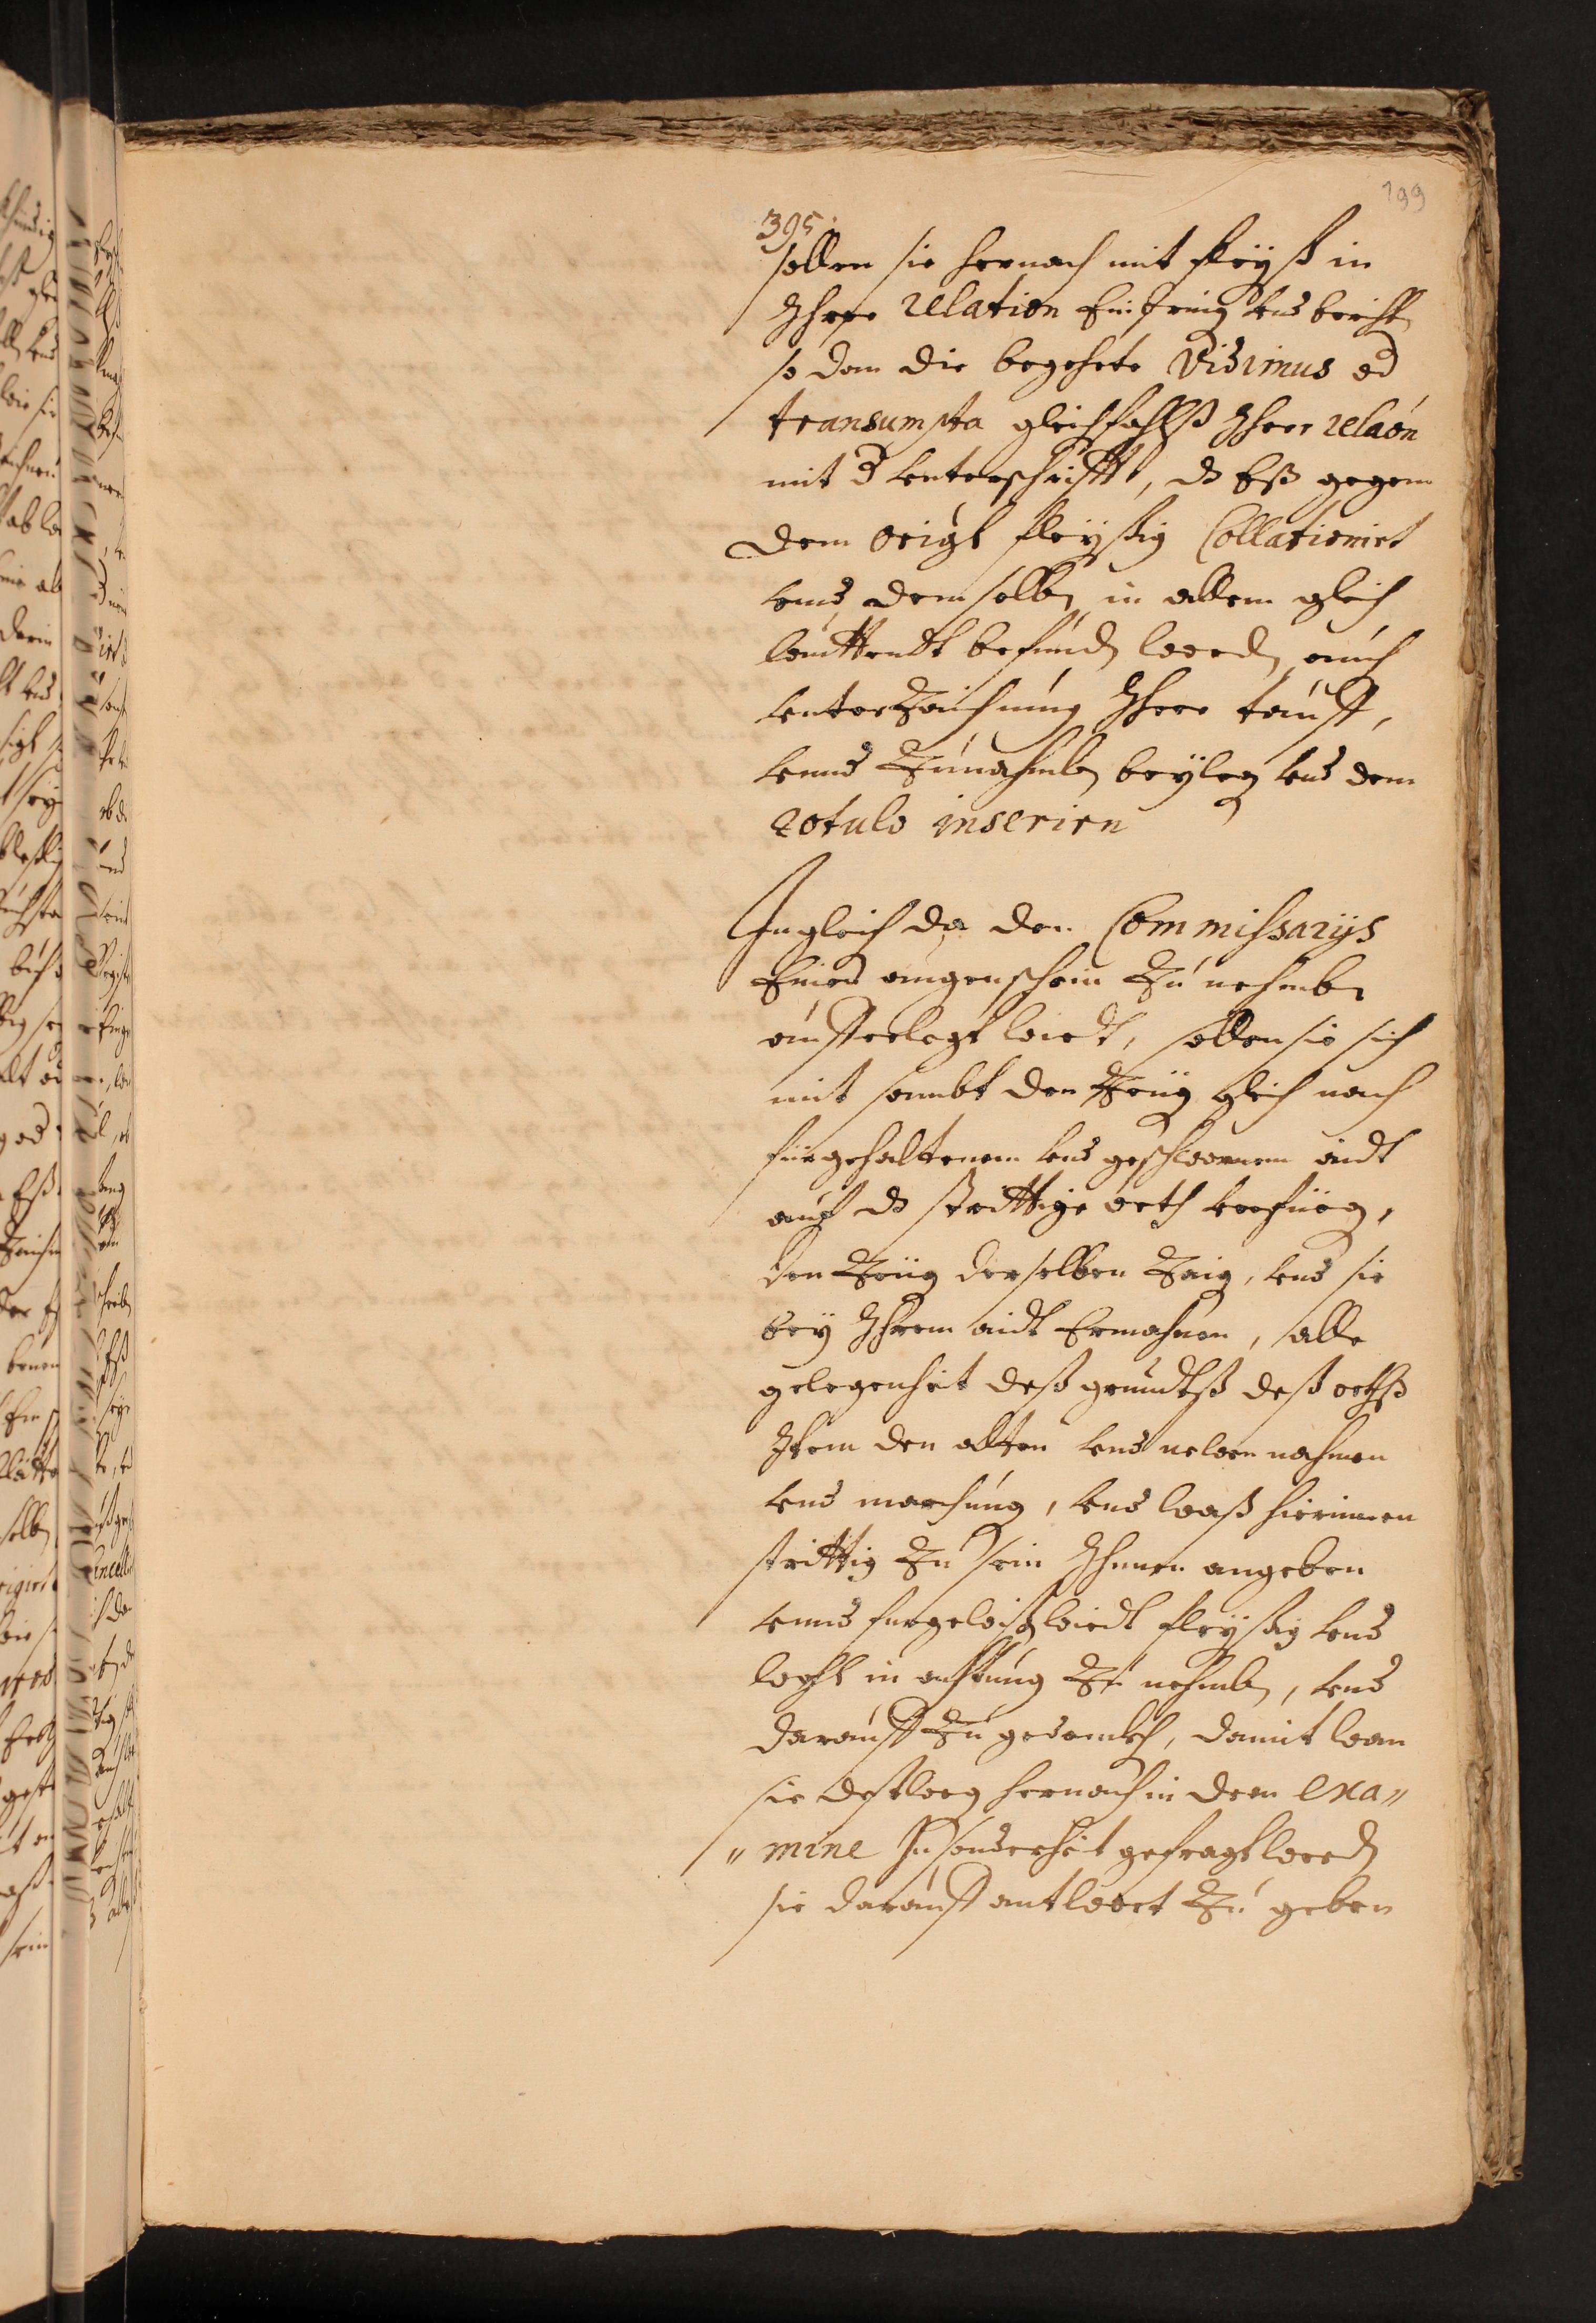 199
395.
sollen sie hernach mit fleyß in
Ihrer relation Einbring vnd bericht
so dan die begehrte Vidimus od
transumpta gleichfahlß Ihrer relaon
mit d vnterschrifft, dz Eß gegem
dem origl fleyßig Collationirt
vnnd demselben in allem gleich
lauttendt befunden werden auch
vnterzaichnung Ihres tauff,
vnnd Zunahmben beyleg vnd dem
rotulo inserirn
Ingleich da den Commissarijs
Einen augenschein Zu nehmben
aufferlegt wirdt, sollen sie sich
mit sambt den Zeüg gleich nach
fürgehaltenem vnd geschwornem aidt
auf dz strittige orth verfüeg,
den Zeüg derselben Zaig, vnd sie
bey Ihrem aidt Ermahnen, alle
gelegenheit deß grundtß deß orthß
Item den alten vnd newen nahmen
vnd marchung, vnd waß hierinnen
strittig Zu sein Ihnnen angeben
vnnd furgewisen wirdt fleyßig vnd
woht in achtung Zu nehmben, vnd
darauff Zu gedenckh, damit wan
sie destweg hernach in dem exa„
„mine Insonderheit gefragt werden
sie darauff antwort Zu geben